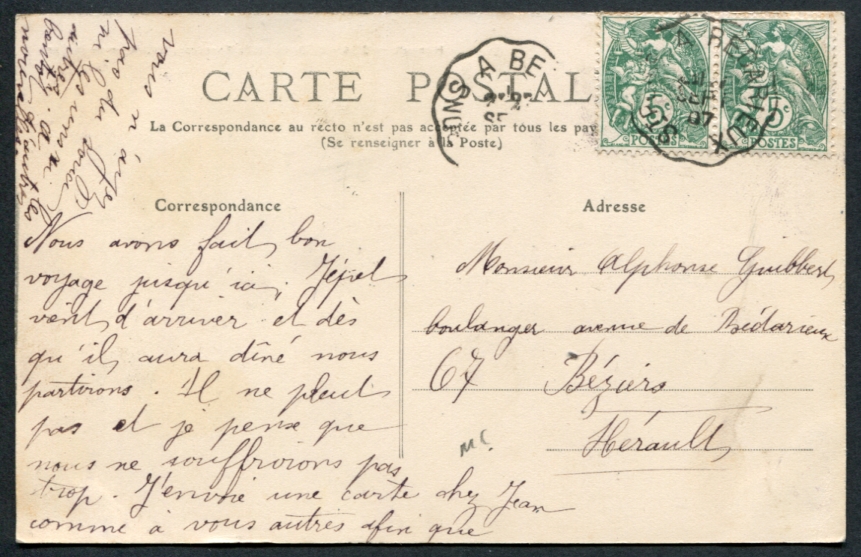 CARTE POSTALE
La Correspondance au recto n'est pas acceptée par tous les pay
(Se renseigner à la Poste)
Correspondance
Nous avons fait bon
voyage jusqu'ici. Jépel
vient d'arriver et dès
qu'il aura dîné nous
partirons. Il ne pleut
pas et je pense que
nous ne souffrirons pas
trop. J'envoie une carte chez Jean
comme à vous autres afin que
vous n'ayez
pas du souci
ni les uns ni
les autres
Adresse
Monsieur Alphonse Guibbert
boulanger avenue de Bédarieux
67 Béziers
Hérault
MC.
A BE
SNOS
A BEDARIEUX
07
5c 5c
POSTES POSTES